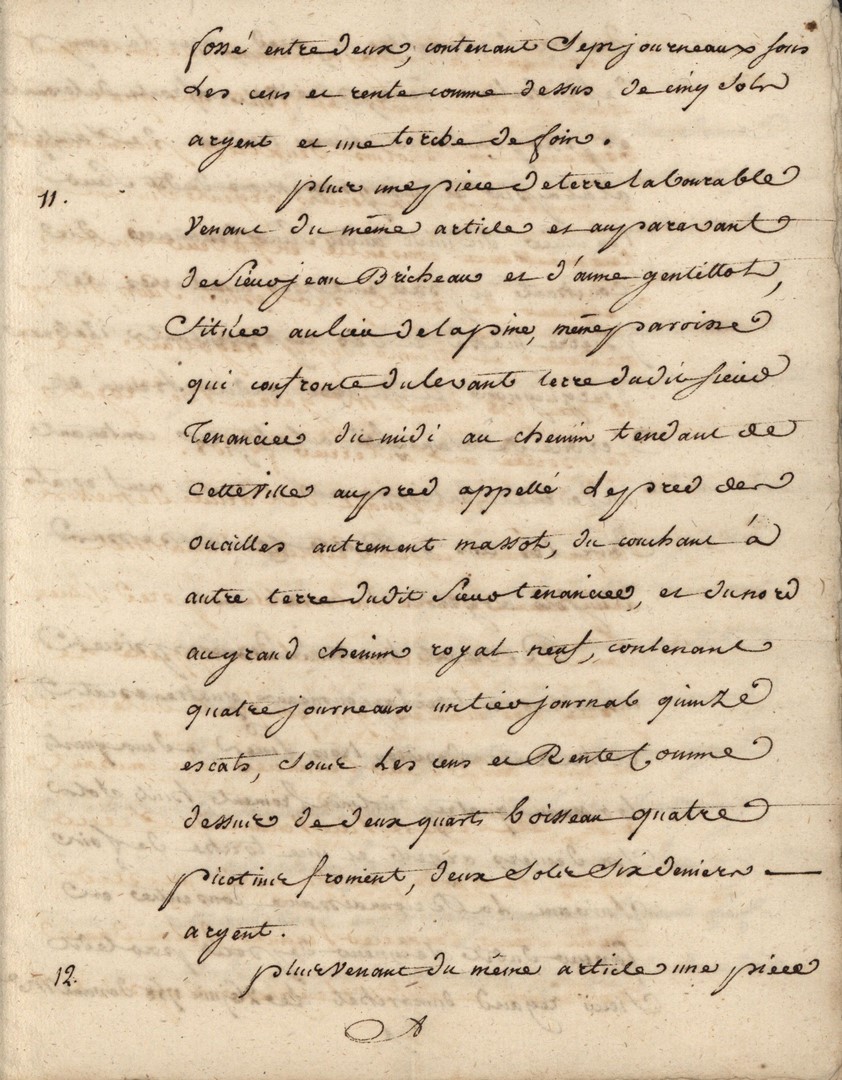 fossé entre deux, contenant Sept journeaux sous
Les cens et rente comme dessus de cinq Sols
argent et une torche de foin.
11. plus une piece de terre labourable
Venant du même article et auparavant
de Sieur jean Bricheau et d'anne gentillot,
Située au lieu de lapine, même paroisse
qui confronte du levant terre dudit Sieur
Tenancier du midi au chemin tendant de
Cette Ville au pred appellé le pred des
ouailles autrement massot, du couchant à
autre terre dudit Sieur tenancier, et du nord
au grand chemin royal neuf, contenant
quatre journeaux un tier journal quinze
escats, Sous Les cens et Rente Comme
dessus de deux quarts boisseau quatre
picotins froment, deux Sols Six deniers
argent.
12. plus Venant du même article une piece